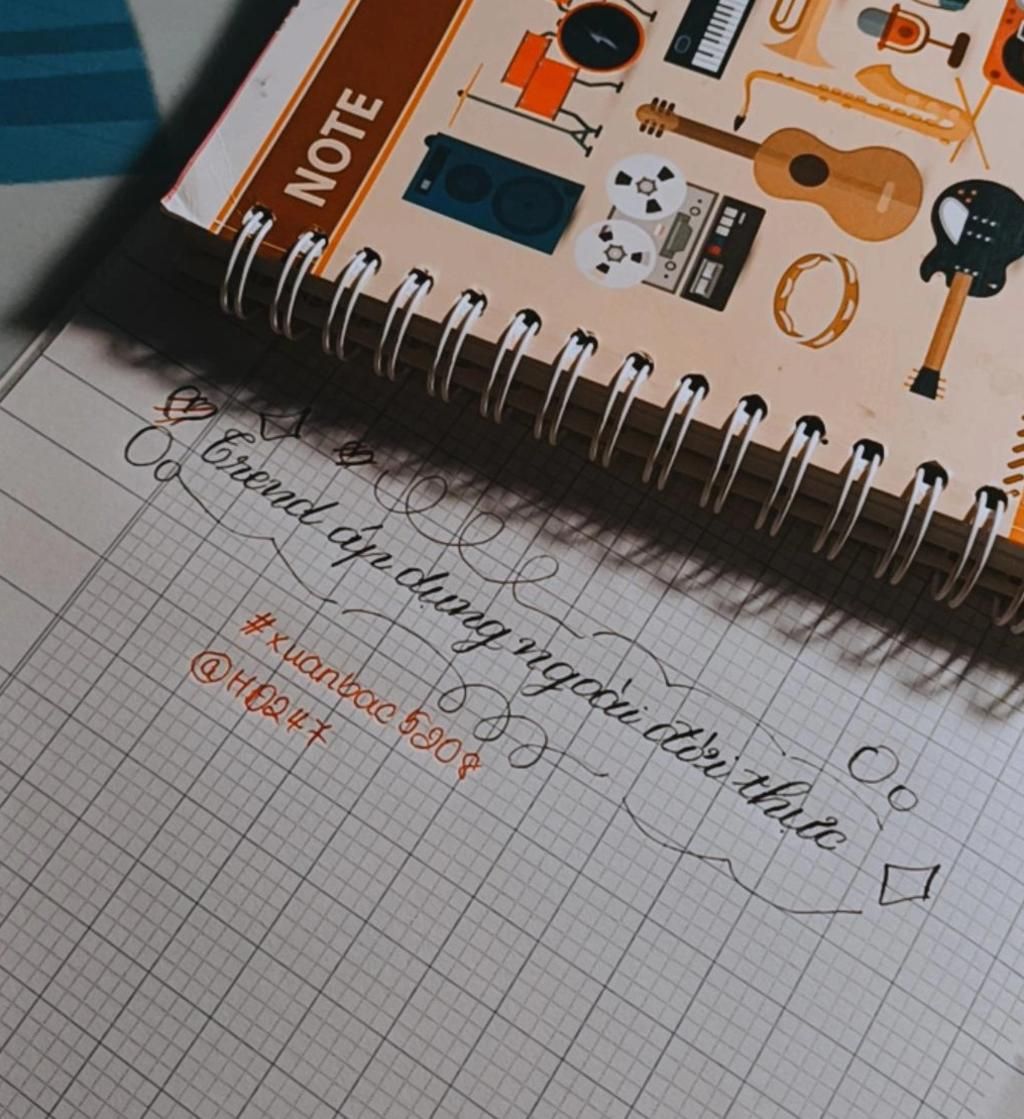 NOTE
Trend áp dụng ngoài đời thực
#xuanbac5208
@HĐ247